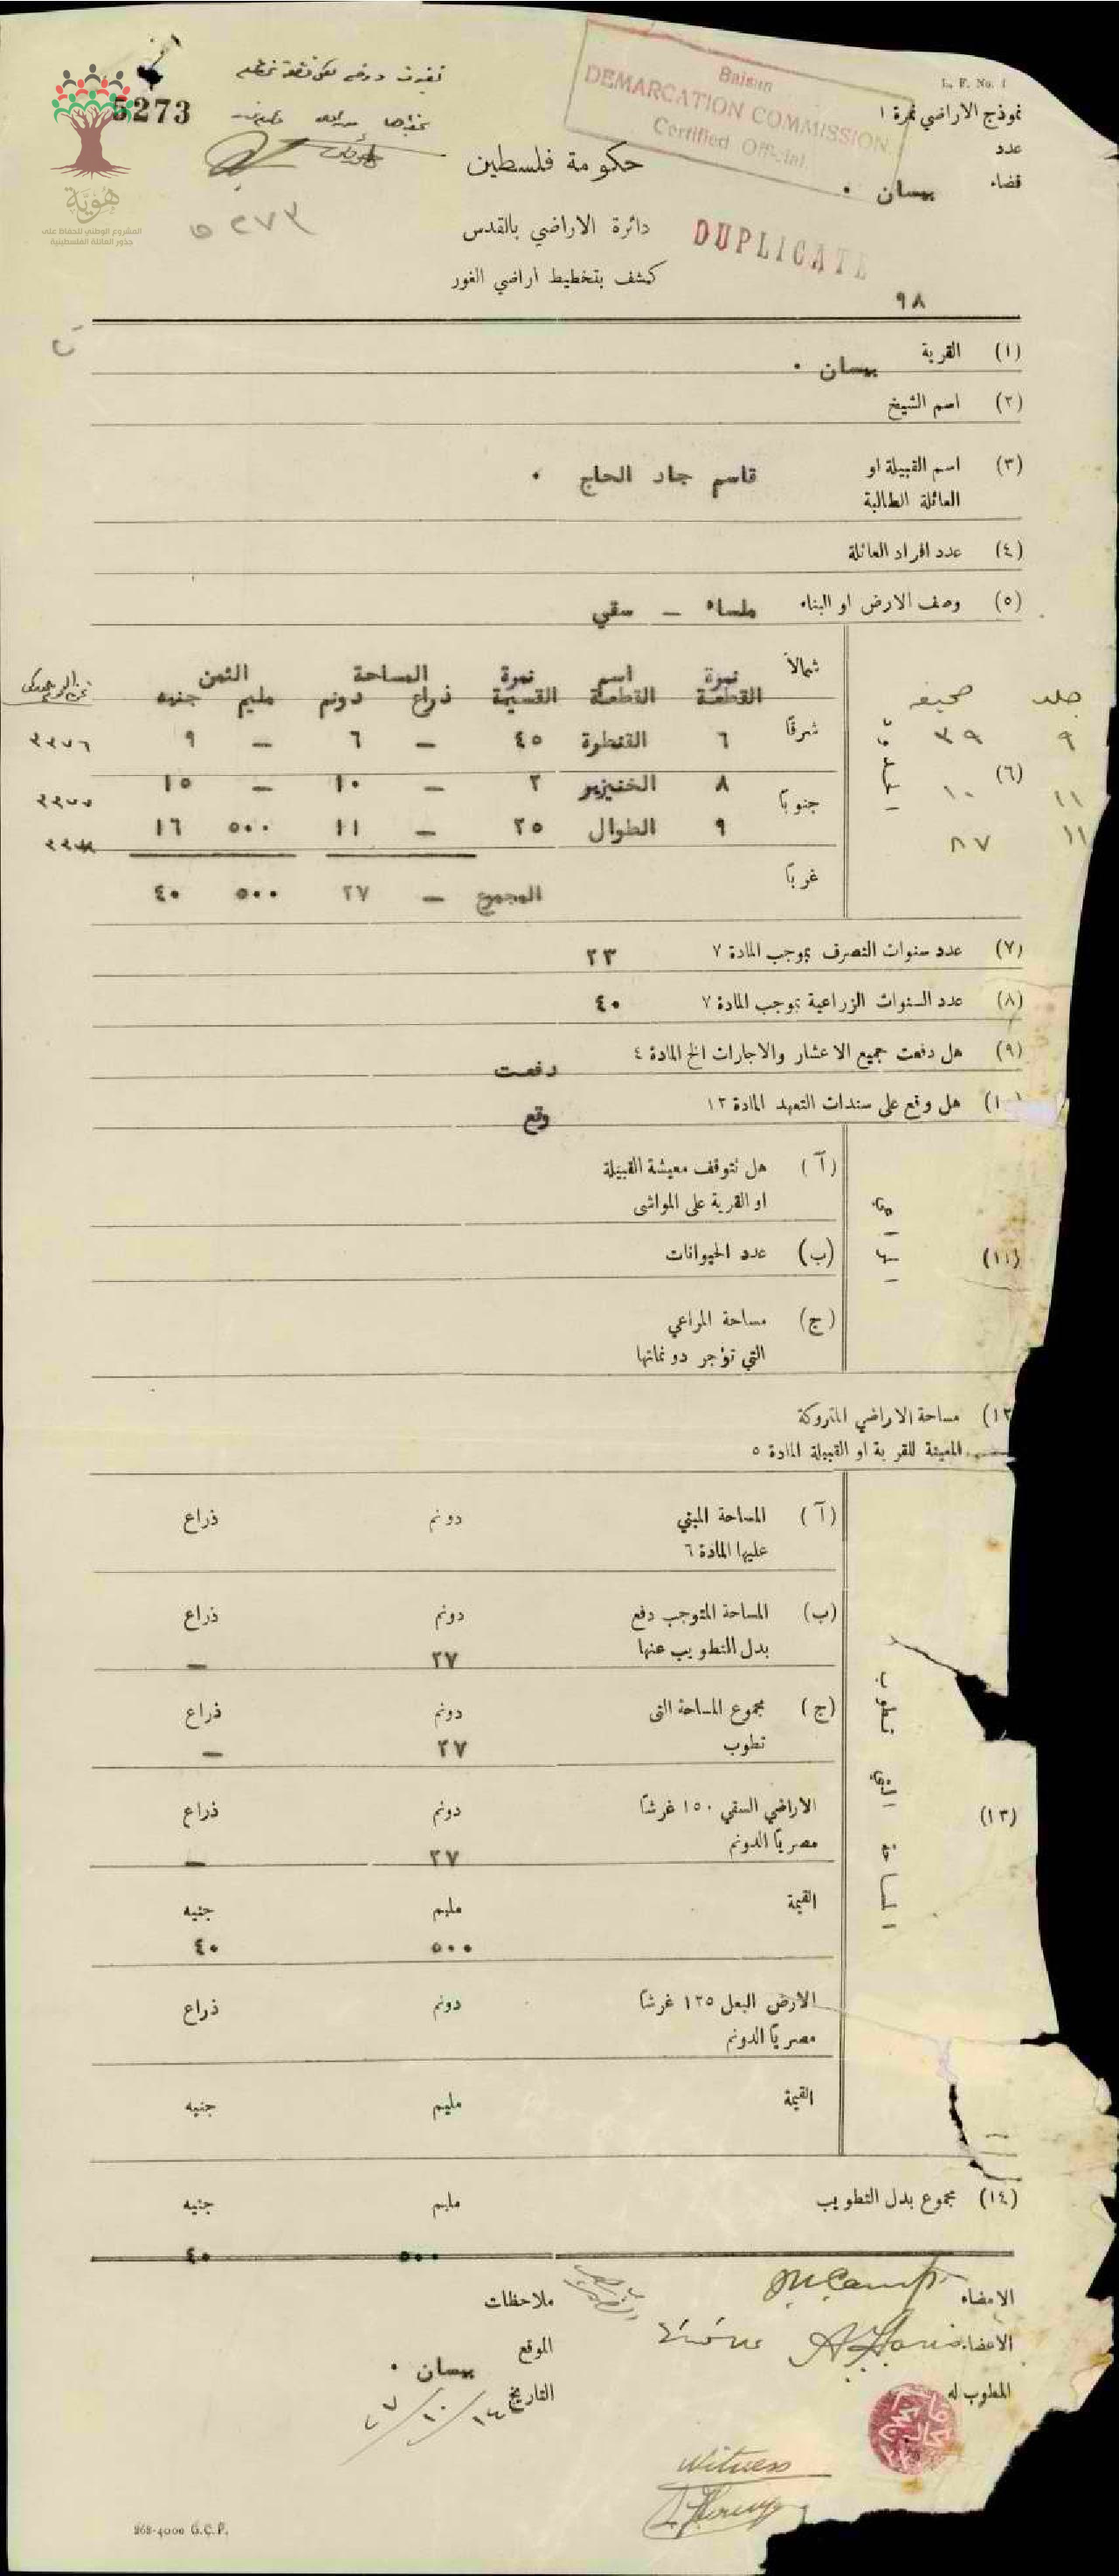 L. F. No. 1
نموذج الاراضي نمرة ١
عدد
قضاء بيسان .
Baisan
DEMARCATION COMMISSION
Certified Official
5273
هُوِيَّة
المشروع الوطني للحفاظ على
جذور العائلة الفلسطينية
٥٢٧٣
حكومة فلسطين
دائرة الاراضي بالقدس
DUPLICATE
كشف بتخطيط اراضي الغور
٩٨
(١) القرية بيسان .
(٢) اسم الشيخ
(٣) اسم القبيلة او قاسم جاد الحاج .
العائلة الطالبة
(٤) عدد افراد العائلة
(٥) وصف الارض او البناء ملساء – سقي
(٦) الحدود
شمالاً
شرقاً
جنوباً
غرباً
جلد صحيفه
٩ ٣٩
١١ ١٠
١١ ٨٧
نمرة القطعة اسم القطعة نمرة القسيمة المساحة ذراع دونم الثمن مليم جنيه
٦ القنطرة ٤٥ – ٦ – ٩
٨ الخنيزير ٢ – ١٠ – ١٥
٩ الطوال ٢٥ – ١١ ٥٠٠ ١٦
المجموع – ٢٧ ٥٠٠ ٤٠
(٧) عدد سنوات التصرف بموجب المادة ٧ ٢٣
(٨) عدد السنوات الزراعية بموجب المادة ٧ ٤٠
(٩) هل دفعت جميع الاعشار والاجارات الخ المادة ٤ دفعت
(١٠) هل وقع على سندات التعهد المادة ١٢ وقع
(١١)
(آ) هل تتوقف معيشة القبيلة
او القرية على المواشي
(ب) عدد الحيوانات
(ج) مساحة المراعي
التي تؤجر دونماتها
(١٢) مساحة الاراضي المتروكة
المعينة للقرية او القبيلة المادة ٥
(١٣) المساحة التي تطوب
(آ) المساحة المبني دونم ذراع
عليها المادة ٦
(ب) المساحة المتوجب دفع دونم ذراع
بدل التطويب عنها ٢٧ –
(ج) مجموع المساحة التي دونم ذراع
تطوب ٢٧ –
الاراضي السقي ١٥٠ غرشاً دونم ذراع
مصرياً الدونم ٢٧ –
القيمة مليم جنيه
٥٠٠ ٤٠
الارض البعل ١٢٥ غرشاً دونم ذراع
مصرياً الدونم
القيمة مليم جنيه
(١٤) مجموع بدل التطويب مليم جنيه
٥٠٠ ٤٠
الامضاء
ملاحظات
الاعضاء
الموقع بيسان .
المطوب له
التاريخ ١٤/١٠/٢٧
Witness
268-4000 G.C.P.